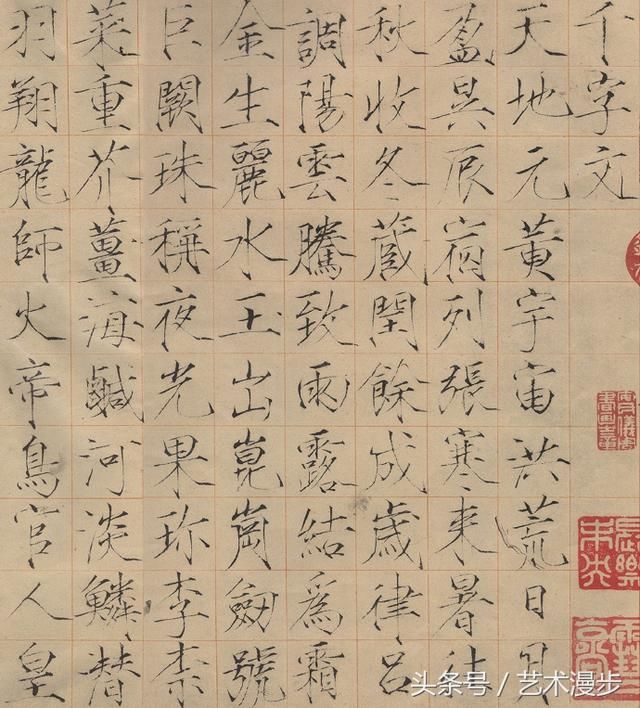 千字文
天地元黃宇宙洪荒日月
盈昃辰宿列張寒来暑往
秋收冬藏閏餘成歲律呂
調陽雲騰致雨露結爲霜
金生麗水玉出崑崗劒號
巨闕珠稱夜光果珎李柰
菜重芥薑海鹹河淡鱗潛
羽翔龍師火帝鳥官人皇
头条号／艺术漫步